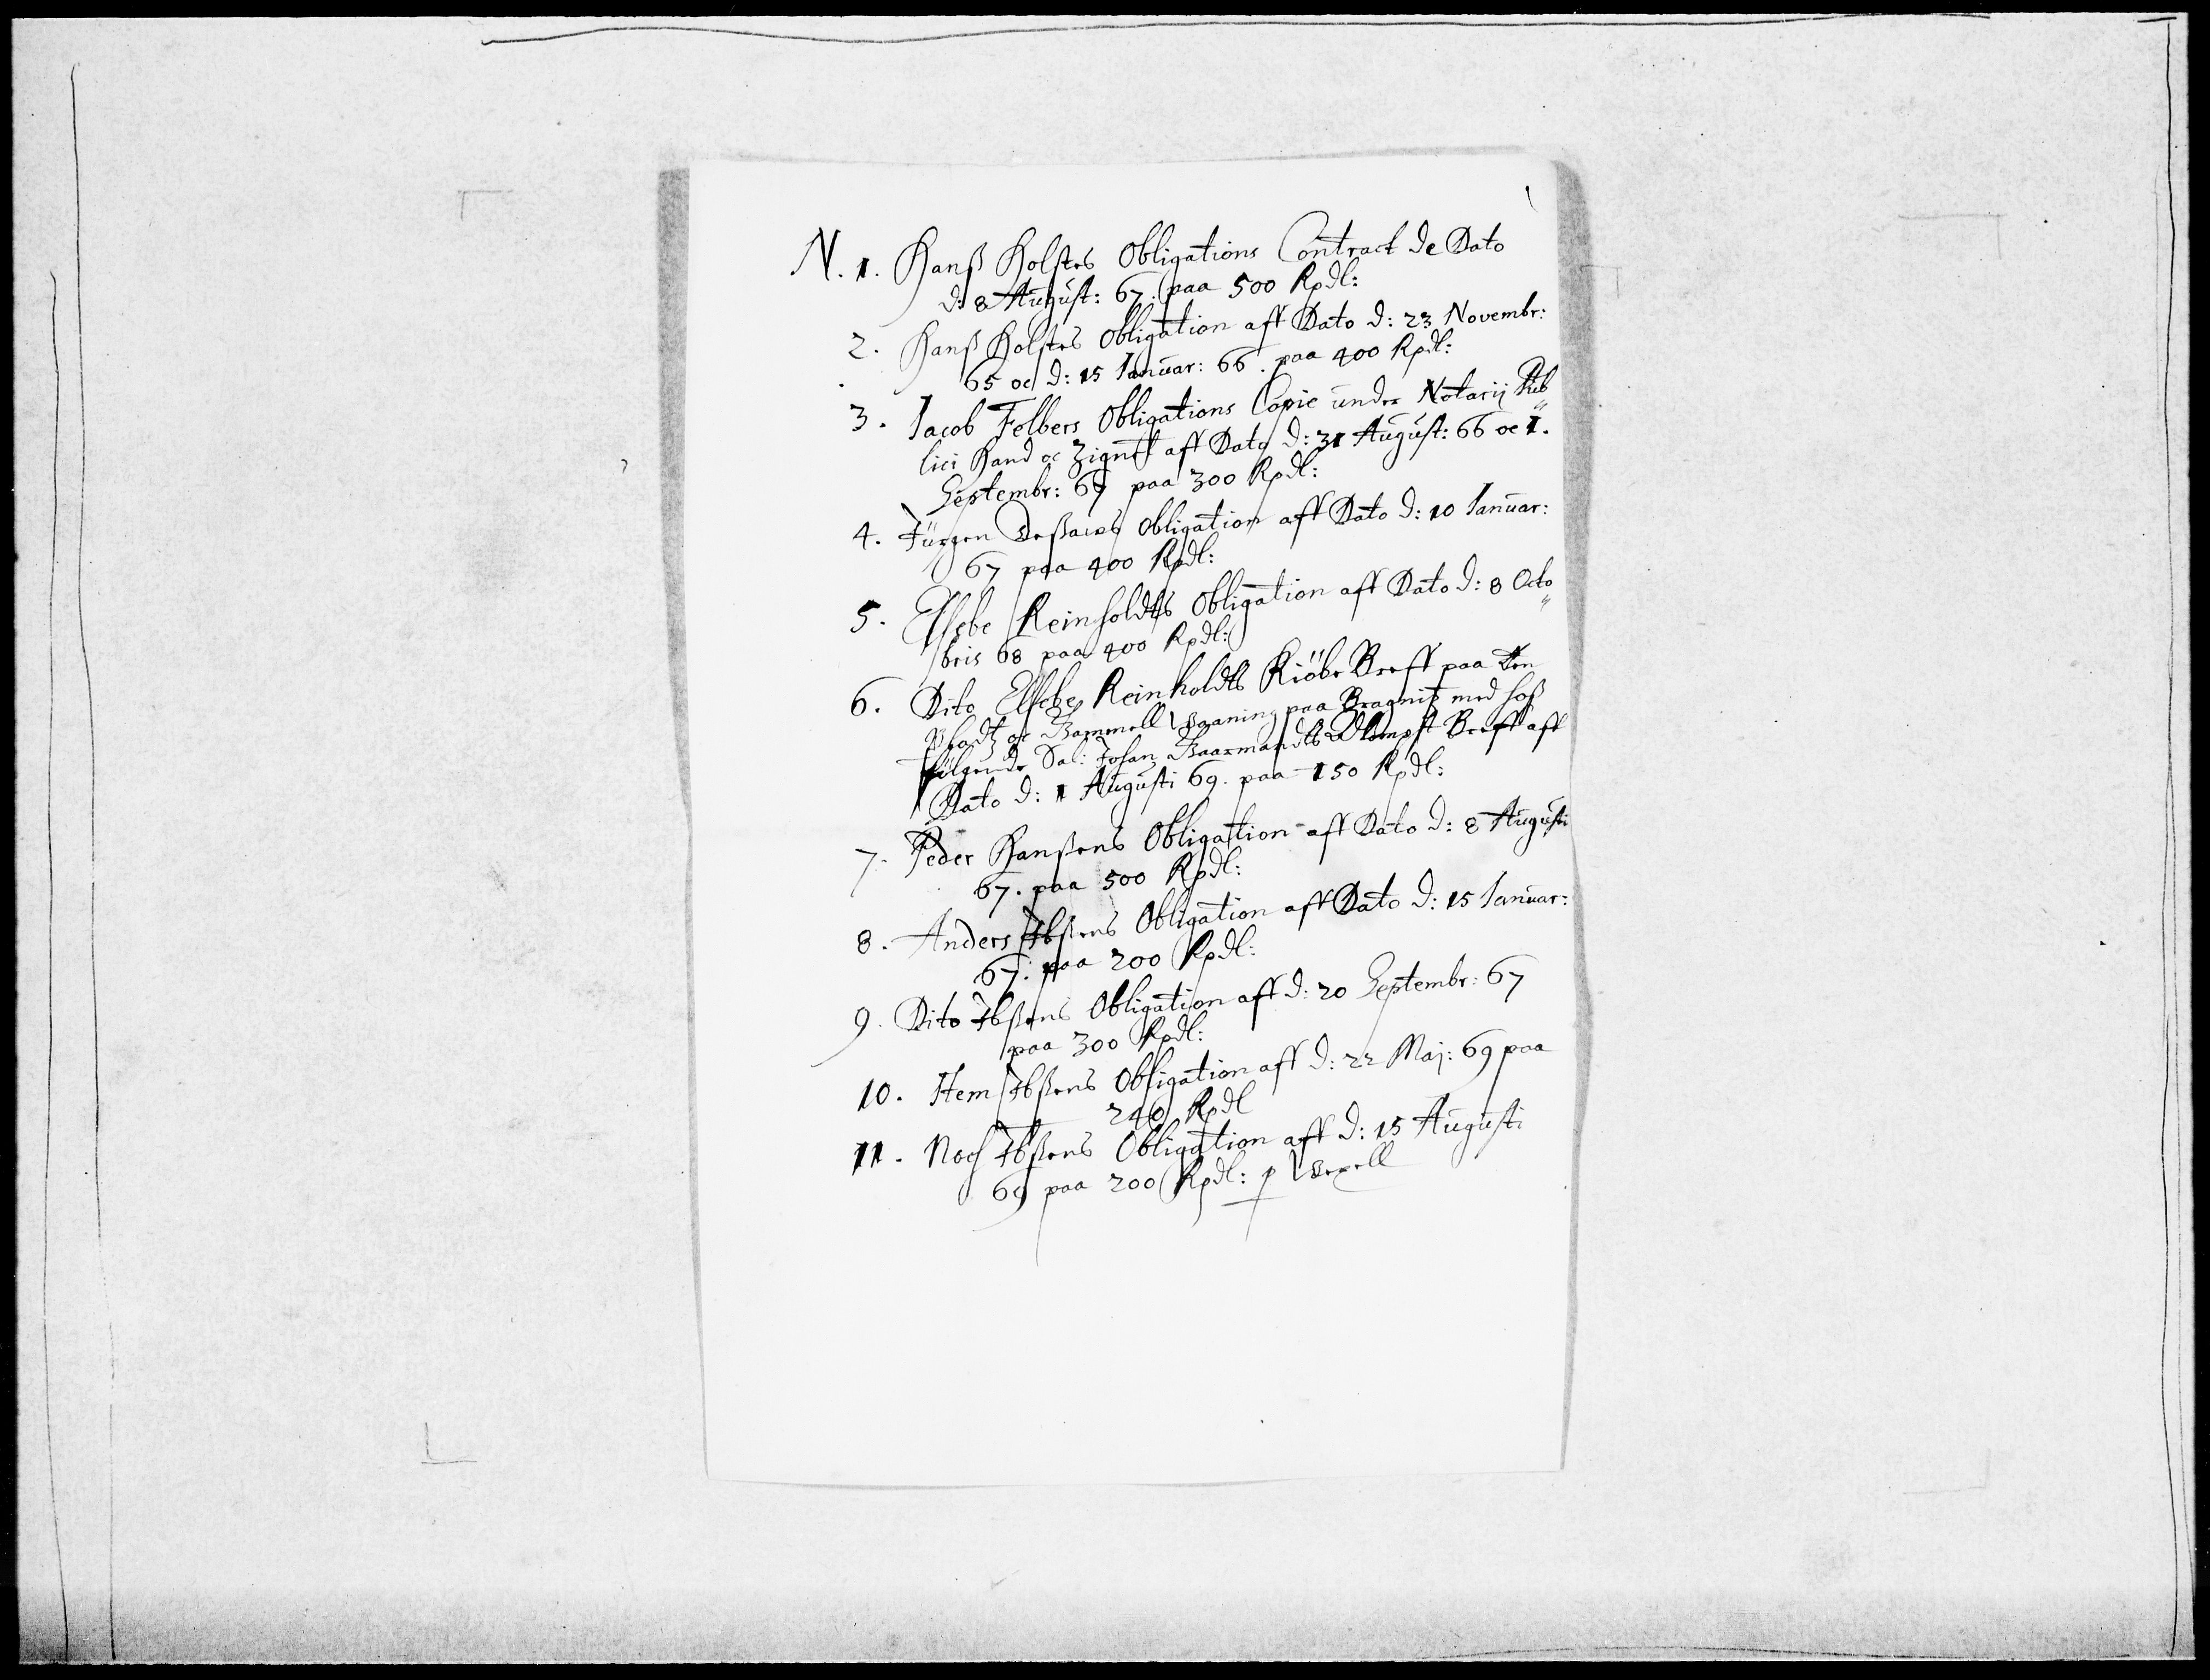 N. 1. Hanß Holstes Obligations Contract de Dato
d: 8 August: 67. paa 500 Rpdl:
2. Hanß Holstes Obligation aff Dato d: 23 Novembr:
65 oc d: 15 Januar: 66. paa 400 Rpdl:
3. Jacob Felbers Obligations Copie under Notarij Pub„
lici Hand oc Zignet aff Dato d: 31 August: 66 oc 1.
Septembr: 67 paa 300 Rpdl:
4. Jürgen Obligation aff Dato d: 10 Januar:
67 paa 400 Rpdl:
5. Elsebe Reinholdts Obligation aff Dato d: 8 Octo„
bris 68 paa 400 Rpdl:
6. Dito Elsebe Reinholdts Kiöbe Breff paa Een
Pladtz oc Gammell Vaaning paa Bragnitz med hoß
fölgende Sal: Johan Breff aff
Dato d: 1 Augusti 69. paa 150 Rpdl:
7. Peder Hanßens Obligation aff Dato d: 8 Augusti
67. paa 500 Rpdl:
8. Anders Ibßens Obligation aff Dato d: 15 Januar:
67: paa 200 Rpdl:
9. Dito Ibßens Obligation aff d: 20 Septembr: 67
paa 300 Rpdl:
10. Item Ibßens Obligation aff d: 22 Maj: 69 paa
240 Rpdl
11. Noch Ibßens Obligation aff d: 15 Augusti
69 paa 200 Rpdl: p Vexell